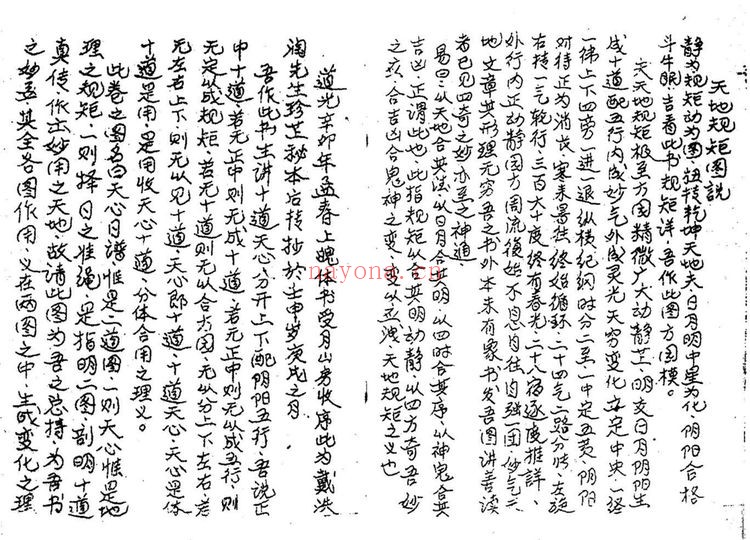 天地规矩图説
静为规矩动为图·扭转乾坤天地夫·日月明中星为化·阴阳合格
斗牛眼·吉看此书规矩详·吾作此图方园模。
夫天地规矩极至方园·精微广大动静·明交日月阴阳生
成十道配五行·内成妙气外成灵光·天穷变化安定中央·一经
一纬上下四旁·一进一退纵横纪纲·时分二至·一中定五黄·阴阳
对待正为消伐·寒来暑往终始循环·二十四气二路分阵·左旋
右转一气轮行·三百六十度终有春光·二十八宿逐度推詳·
外行内正动静园方·周流復始不息·自往自独一团·妙气三
地文章其形理无穷·吾之书外本未有象·书发吾图讲善读
者已见四奇之妙亦至之神道
易曰·从天地合其法·从日月合其明·从四时合其序·从神鬼合其
吉凶·正谓此也·此指规矩从合其明·动静从四方奇吾妙
之玄·合吉凶合鬼神之变·变从丟洩·天地规矩之义也
道光辛卯年孟春上魄体书受月山房收序·此为戴洪
淘先生珍芷秘本后转抄於壬申岁庚戌之月
吾作此书主讲十道天心·分开上下配阴阳五行·吾说正
中十道·若无正中则无成十道·若无正中则无从成五行·则
无定从成规矩·若无十道则无从合方园·无从分上下左右·若
无左右上下则无从见十道·天心即十道·十道天心·天心是体
十道是用·是用收天心十道·分体合用之理义。
此卷之图名曰天心日譜·惟是二道图·一则天心惟是地
理之规矩·一则择日之准绳·是指明二图·剖明十道
真传作出妙用之天地·故请此图为吾之总持·为吾书
之妙至·其全各图作用·义在两图之中·生成变化之理
nayona.cn